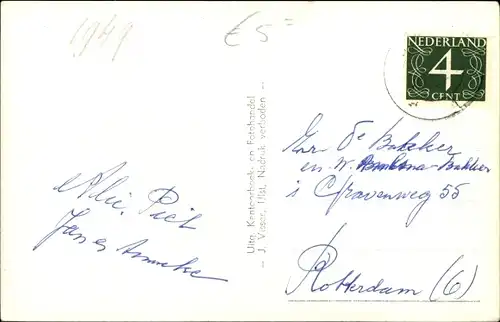 1949
€ 5=
NEDERLAND
4
CENT
Alie, Piet
Jan en Anneke
Uitg. Kantoorboek- en Fotohandel
J. Visser, IJlst, Nadruk verboden
de Bakker
en
's Gravenweg 55
Rotterdam (6)